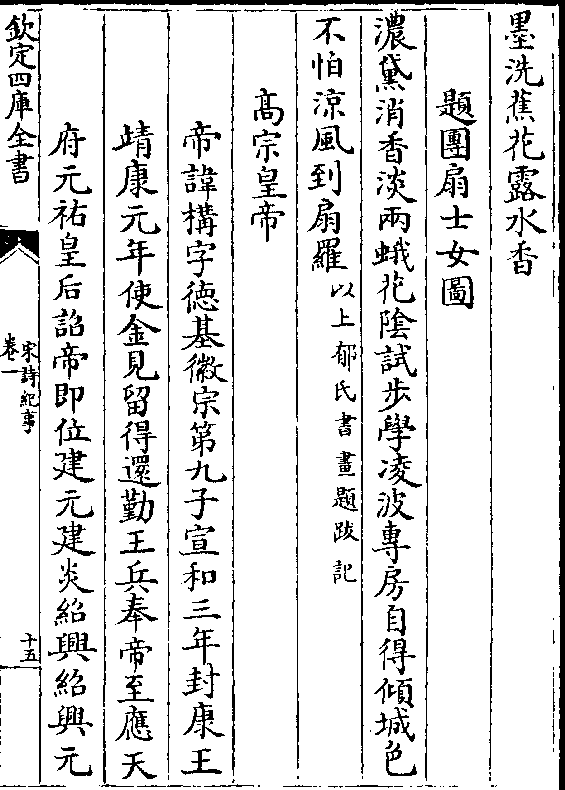 墨洗蕉花露水香
題團扇士女圖
濃黛消香淡兩蛾花陰試步學凌波專房自得傾城色
不怕涼風到扇羅以上郁氏書畫題跋記
高宗皇帝
帝諱構字德基徽宗第九子宣和三年封康王
靖康元年使金見留得還勤王兵奉帝至應天
府元祐皇后詔帝即位建元建炎紹興紹興元
欽定四庫全書
宋詩紀事
卷一
十五